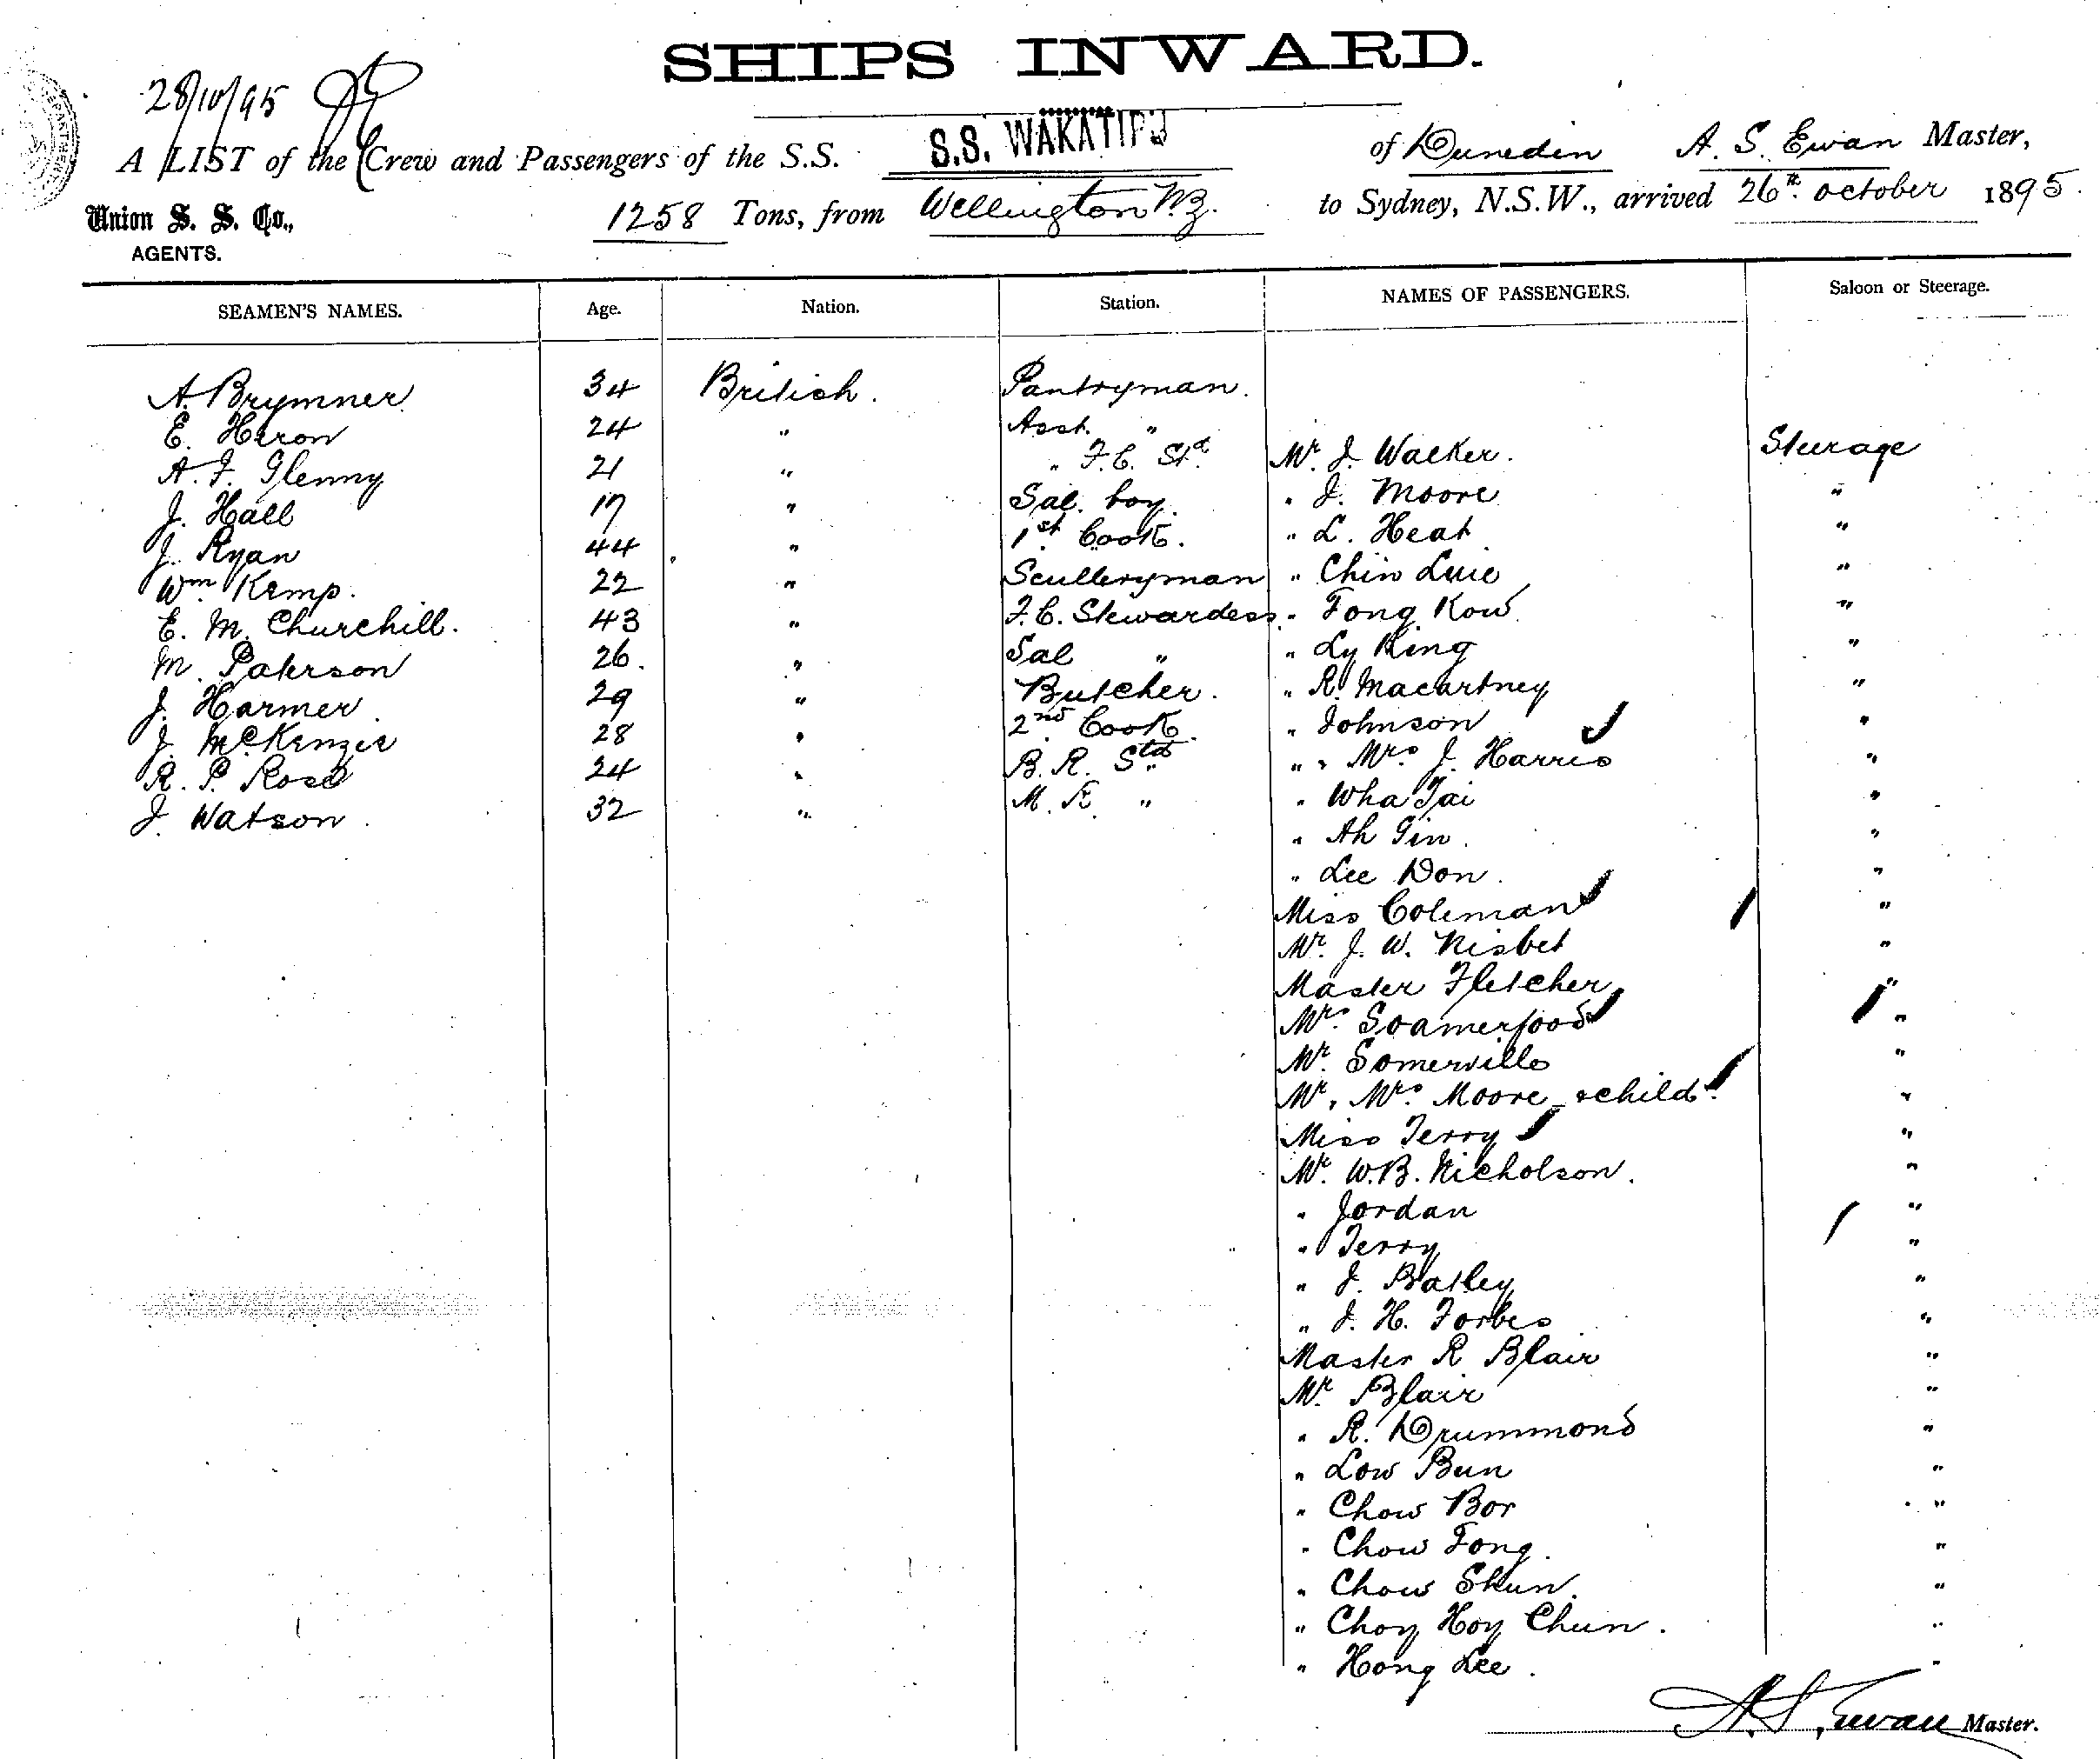 SHIPS INWARD.
28/10/95
A LIST of the Crew and Passengers of the S.S. S.S. WAKATIPU of Dunedin A. S. Ewan Master,
Union S. S. Co., 1258 Tons, from Wellington N.Z. to Sydney, N.S.W., arrived 26th October 1895.
AGENTS.
SEAMEN'S NAMES. Age. Nation. Station. NAMES OF PASSENGERS. Saloon or Steerage.
A. Brymner 34 British. Pantryman.
E. Heron 24 " Asst. "
A. F. Glenny 21 " " F.C. Std. Mr. J. Walker. Steerage
J. Hall 17 " Sal. boy. " J. Moore "
J. Ryan 44 " 1st Cook. " L. Heat "
Wm. Kemp. 22 " Sculleryman " Chin Luie "
E. M. Churchill. 43 " F.C. Stewardess " Fong Kow "
M. Paterson 26. " Sal " " Ly King "
J. Harmer 29 " Butcher. " R. Macartney "
J. McKenzie 28 " 2nd Cook. " Johnson "
R. P. Rose 24 " B. R. Std. " " Mrs J. Harris "
J. Watson 32 " M. R. " " Wha Tai "
" Ah Gin. "
" Lee Don. "
Miss Coleman "
Mr. J. W. Nisbet "
Master Fletcher "
Mrs. "
Mr. Somerville "
Mr, Mrs. Moore & child "
Miss Terry "
Mr. W.B. Nicholson. "
" Jordan "
" Terry "
" J. Batley "
" J. H. Forbes "
Master R Blair "
Mr. Blair "
" R. Drummond "
" Low Bun "
" Chow Bor "
" Chow Fong. "
" Chow Shun. "
" Choy Hoy Chun. "
" Hong Lee. "
A. S. Ewan Master.